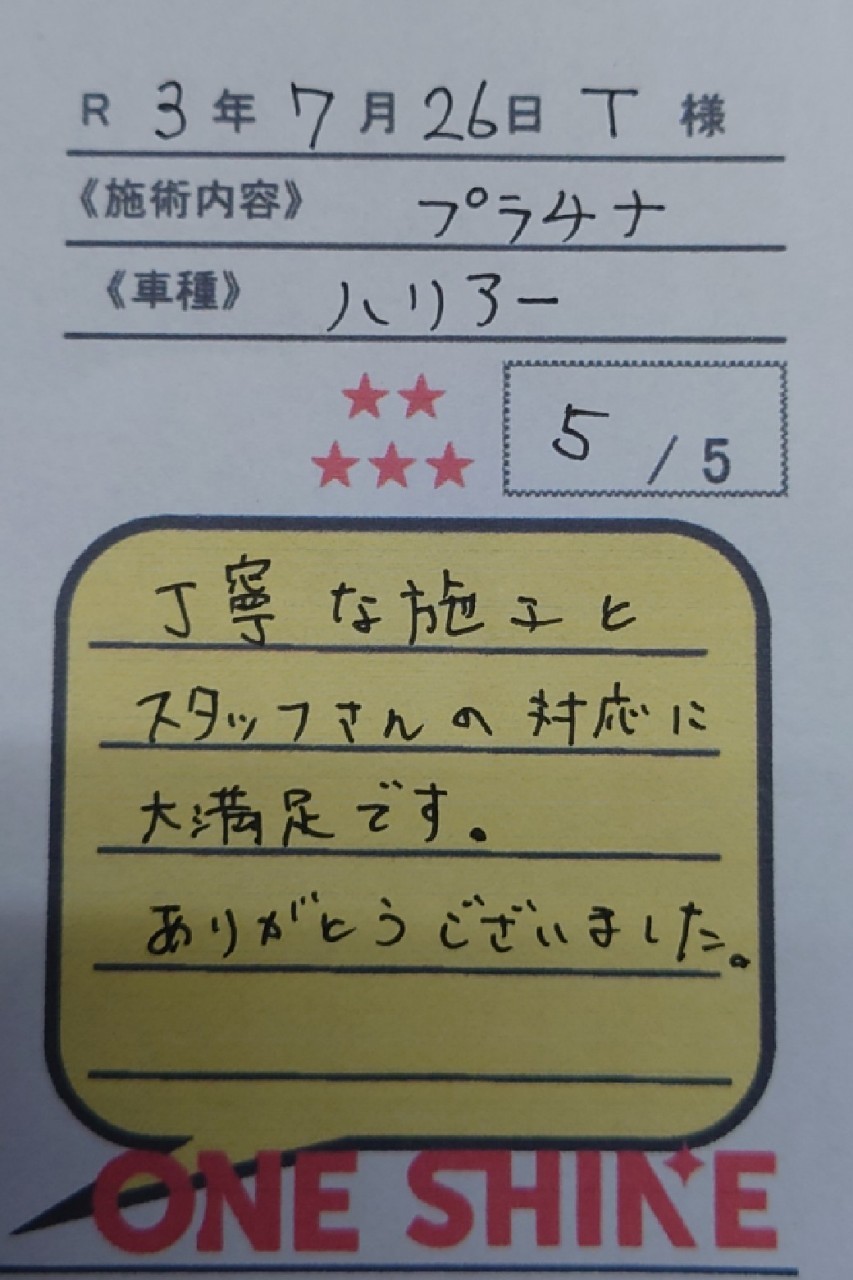 R 3年 7月 26日 T 様
《施術内容》 プラチナ
《車種》 ハリアー
★★
★★★
5 / 5
丁寧な施工と
スタッフさんの対応に
大満足です。
ありがとうございました。
ONE SHINE